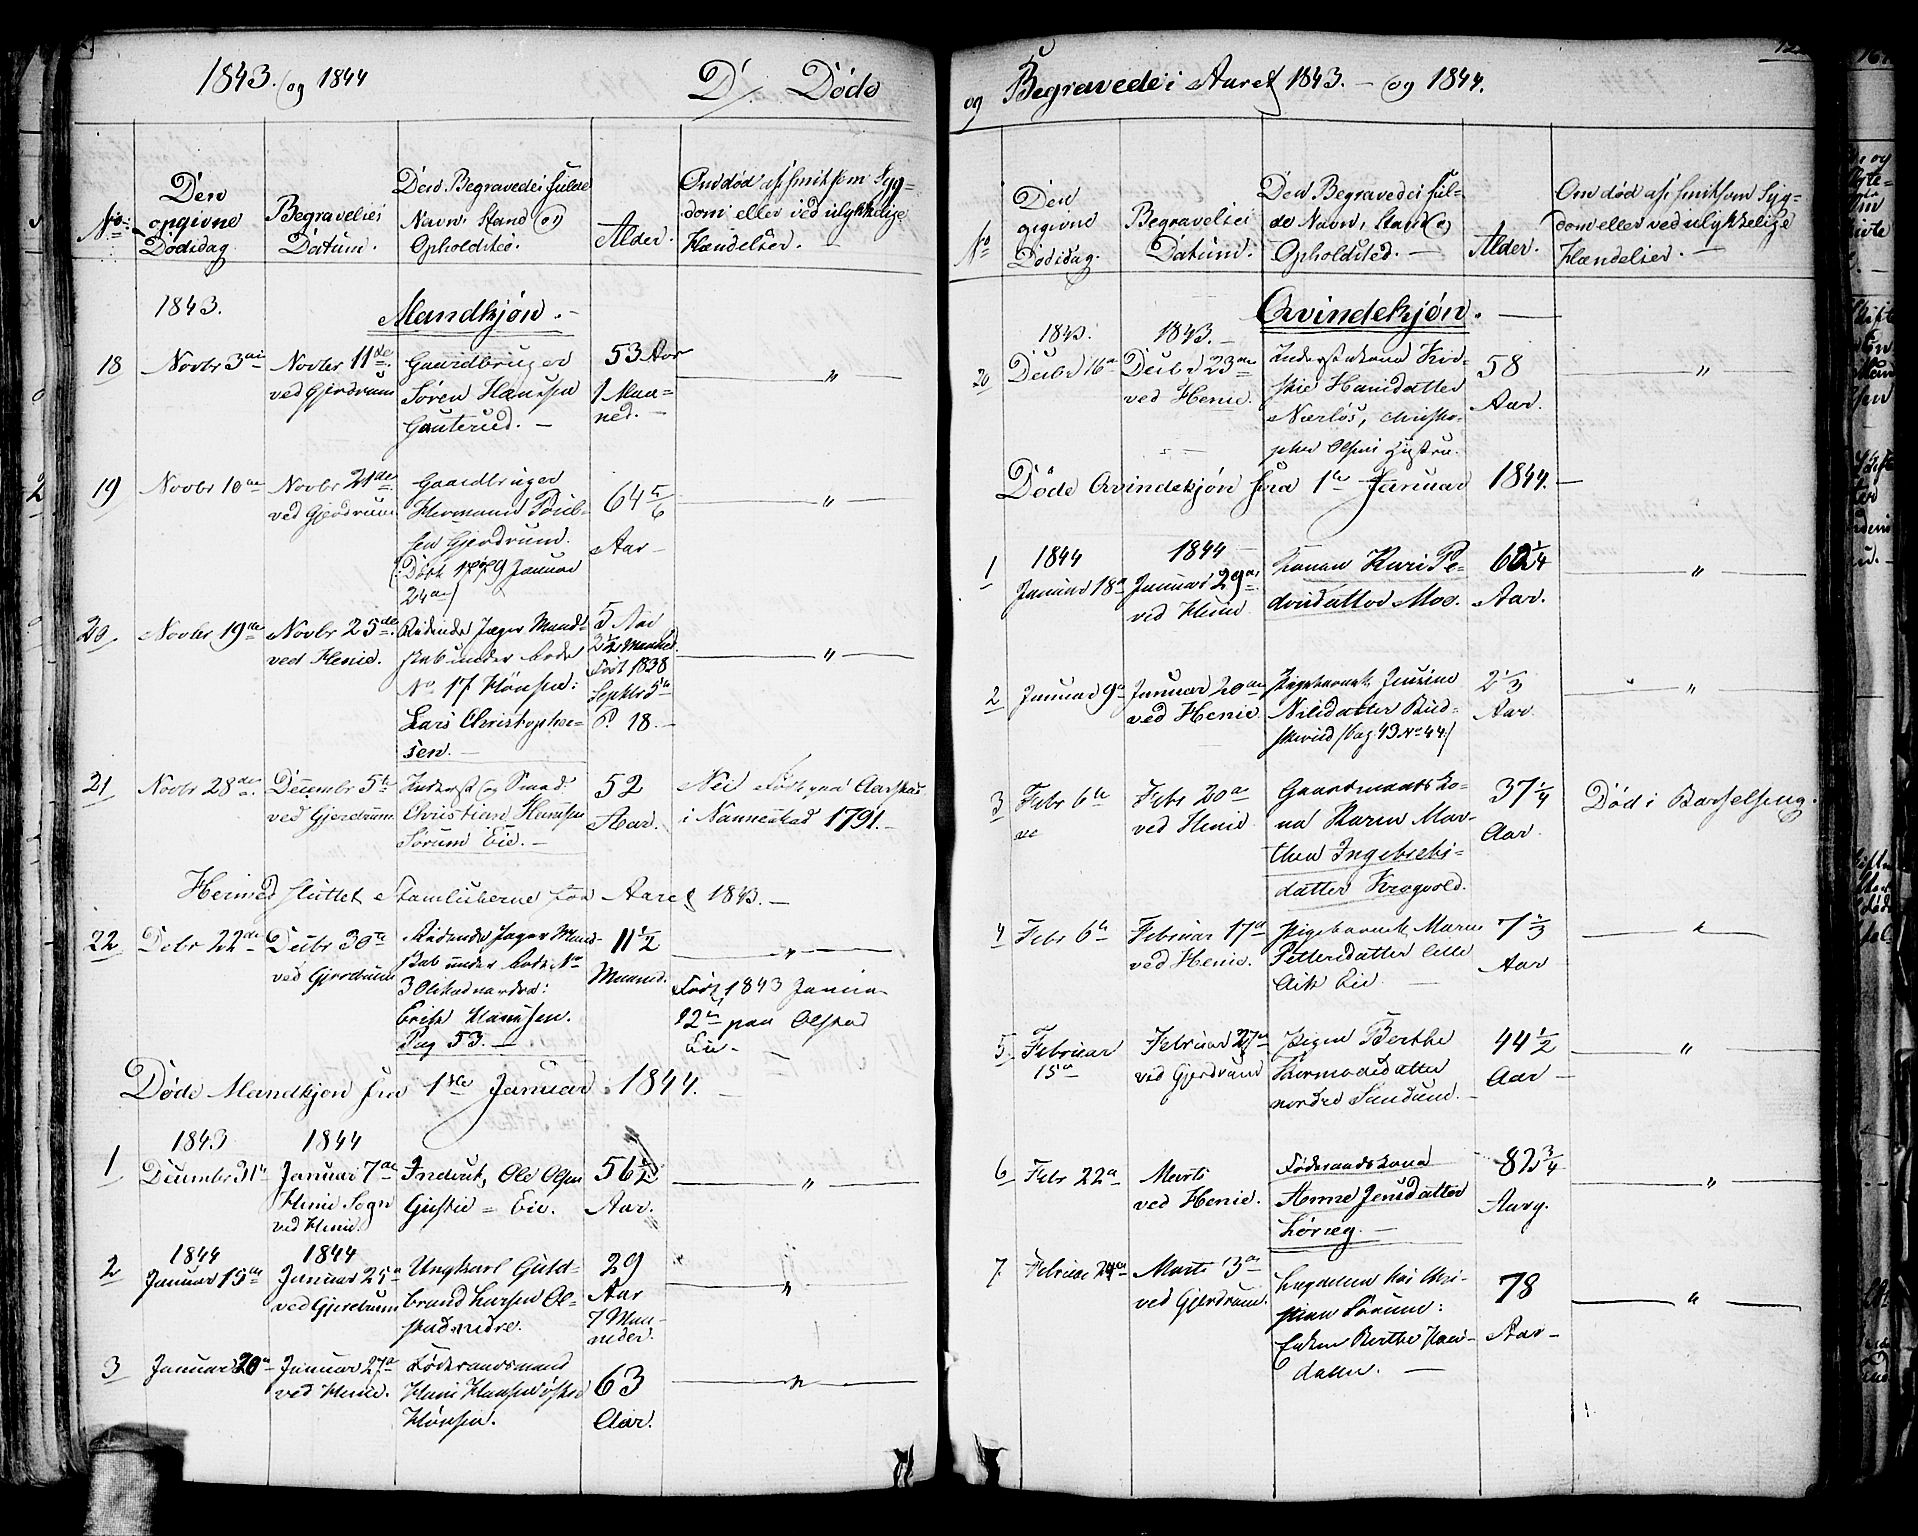 1843. og 1844
D/. Døde
No:
Den opgivne Dødsdag
Begravelses Datum.
Den Begravedes fulde Navn, Stand og Opholdsted.
Alder.
Om død af smitsom Syg-
dom eller ved ulykkelige
Hændelser.
1843.
Mandkjøn.
18
Novbr 3die
Novbr 11de
ved Gjerdrum
Gaardbruger
Søren Hansen
Gauterud.
53 Aar
1 Maa-
ned.
"
19
Novbr 16de
Novbr 21de
ved Gjerdrum
Gaardbruger
Hermann Poul-
sen Gjerdrum.
Døbt 1779 Januar
24de
64 5/6
Aar
"
20
Novbr 19de
Novbr 25de
ved Henie.
Ridende Jæger Mand-
skab under Lodd
No 17 Hønsen:
Lars Christopher-
sen.
5 Aar
2 1/2 Maaned
Født 1838
Septbr 5te
P. 18.
"
21
Novbr 28de
Decembr 5te
ved Gjerdrum
Inderst og Smed
Christian Hansen
Sørum Eie.
52
Aar.
Nei Født paa Aarstad
i Nannestad 1791.
Hermed sluttet Storlisterne for Aaret 1843.
22
Debr 22de
Decbr 30te
ved Gjerdrum
Ridende Jæger Mand-
skab under Lodd No
3 Olstad nordre:
Erik Hansen.
Pag 53.
11 1/2
Maaned.
"
Født 1843 Janua
12te paa Olstad
Eie.
Døde Mandkjøn fra 1ste Januar 1844.
1
1843
Decembr 31te
1844
Januar 7de
Henie Sogn
ved Henie.
Inderst, Ole Olsen
Gjestie = Eie.
56 1/2
Aar.
"
2
1844
Januar 15de
1844
Januar 25de
ved Gjerdrum
Ungkarl Guld-
brand Larsen Ol-
stad nedre.
29
Aar
7 Maa-
neder.
"
3
Januar 20de
Januar 27de
ved Henie.
Føderaadsmand
Hans Hansen østre
Hønsen.
63
Aar.
"
og Begravede i Aaret 1843. og 1844.
No
Den opgivne Dødsdag.
Begravelses Datum.
Den Begravedes ful-
de Navn, Stand og
Opholdsted.
Alder.
Om død af smitsom Syg-
dom eller ved ulykkelige
Hændelser.
Qvindekjøn.
20
1843.
Decbr 16de
1843.
Decbr 23de
ved Henie.
Inderst kone
Hansdatter
Nærløs, Christo-
pher Olsens Hustru.
58
Aar.
"
Døde Qvindekjøn fra 1te Januar 1844.
1
1844
Januar 18de
1844
Januar 29de
ved Henie
Konen Kari Pe-
dersdatter Moe.
62 1/4
Aar.
"
2
Januar 9de
Januar 20de
ved Henie
Pigebarnet Jensine
Nilsdatter Bud-
skerud (Pag 49 No 44)
2 1/3
Aar.
"
3
Febr 6te
Febr 20de
ved Henie
Gaardmands Ko-
ne Karen Mar-
thea Ingebrets-
datter Kragvold.
37 1/4
Aar.
Død i Barselseng.
4
Febr 6te
Februar 17de
ved Henie.
Pigebarnet Maren
Pettersdatter lille
Ask Eie
7 1/3
Aar
"
5.
Februar
15de
Februar 27de
ved Gjerdrum
Pigen Berthe
Thormodsdatter
nordre Sundum.
44 1/2
Aar
"
6
Febr 22de
Marts
ved Henie.
Føderaadskone
Anne Jensdatter
Lørieg.
82 3/4
Aarg.
"
7.
Februar 24de
Marts 13de
ved Gjerdrum.
Lægdslem hos Chri-
stian Sørum:
Enken Berthe Han-
datter.
78
Aar
"